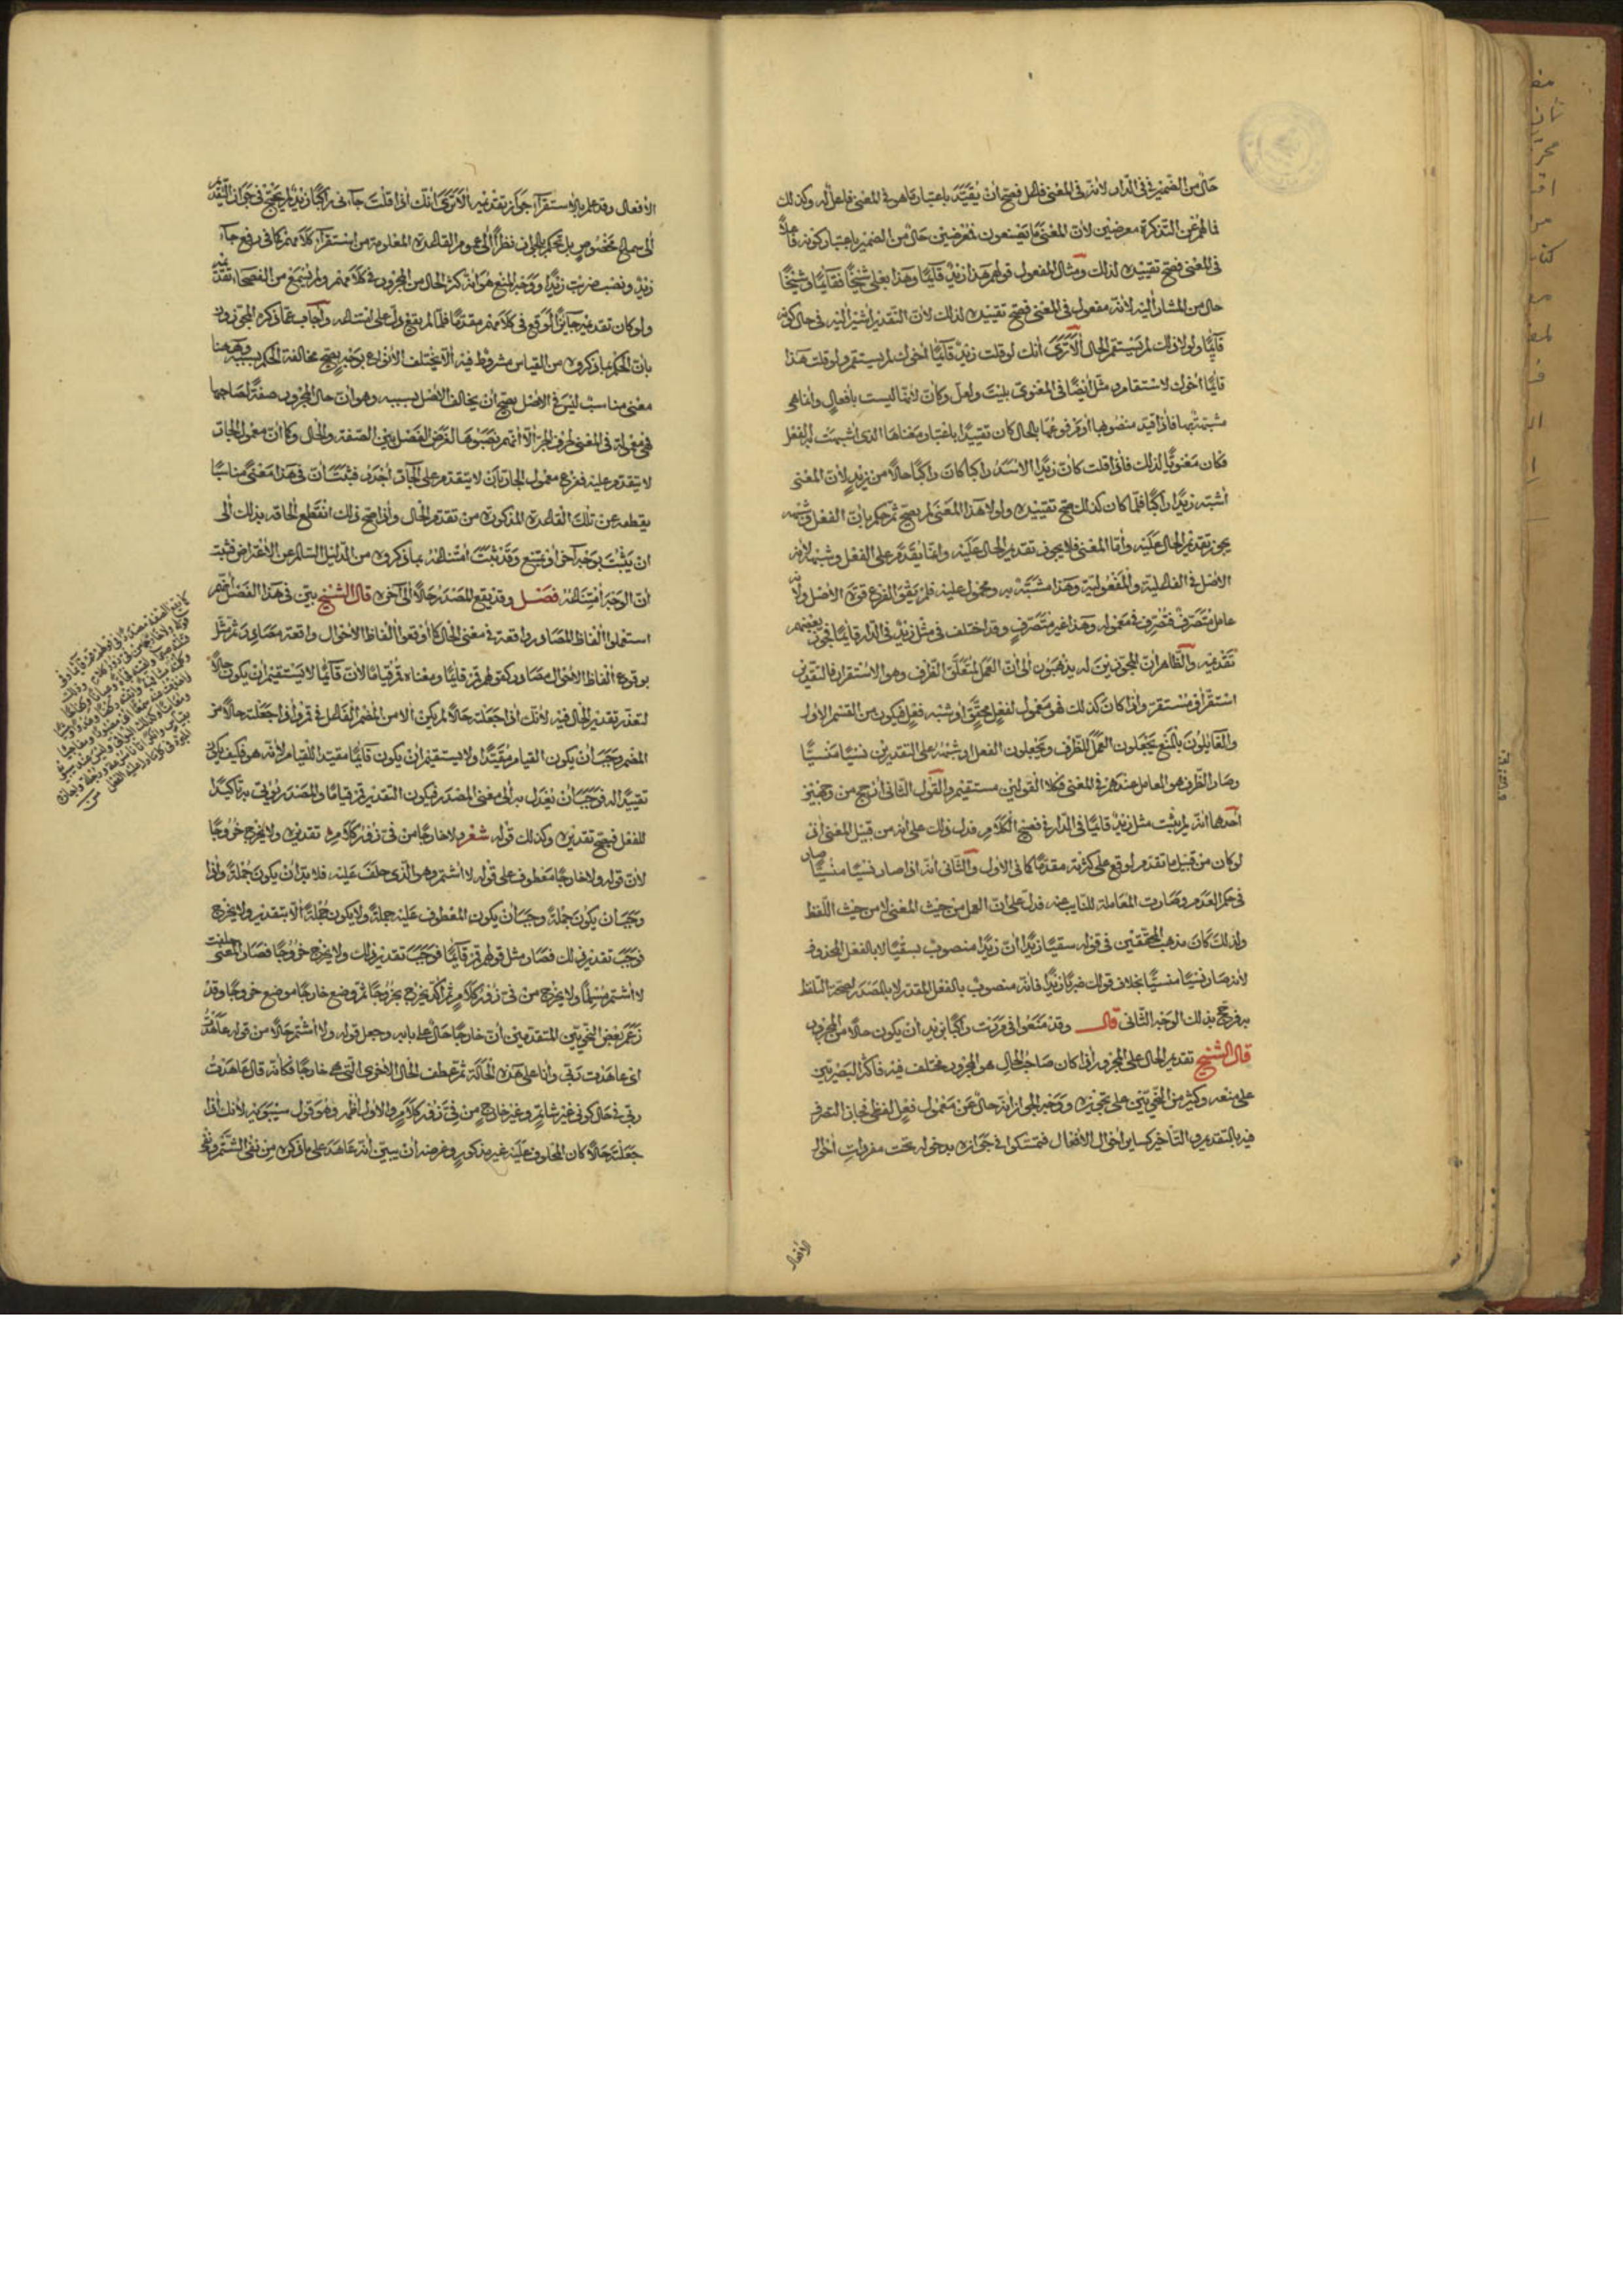 حال من الضمير في في الدار لأنه في المعنى فاعل فصح أن يقيد باعتبار ما هو في المعنى فاعل له وكذلك
فما لهم عن التذكرة معرضين لأن المعنى ما يصنعون فمعرضين حال من الضمير باعتبار كونه فاعلا
في المعنى فصح تقييده لذلك ومثال المفعول قولهم هذا زيد قائما وهذا بعلي شيخا فقائما وشيخا
حال من المشار إليه لأنه مفعول في المعنى فصح تقييده لذلك لأن التقدير أشير إليه في حال كونه
قائما ولولا ذلك لم يستقم الحال ألا ترى أنك لو قلت زيد قائما أخوك لم يستقم ولو قلت هذا
قائما أخوك لاستقام ومثل أيضا في المعنوي بليت ولعل وكأن لأنها ليست بأفعال وإنما هي
مشبهة بها فإذا قيد منصوبها أو مرفوعها بالحال كان تقييدا باعتبار معناها الذي أشبهت به الفعل
فكان معنويا لذلك فإذا قلت كأن زيدا الأسد راكبا كان راكبا حالا من زيد لأن المعنى
أشبه زيدا راكبا فلما كان كذلك صح تقييده ولولا هذا المعنى لم يصح ثم حكم بأن الفعل وشبهه
يجوز تقديم الحال عليه وأما المعنى فلا يجوز تقديم الحال عليه وإنما يقدم على الفعل وشبهه لأنه
الأصل في الفاعلية والمفعولية وهذا مشبه به ومحمول عليه فلم يقو الفرع قوة الأصل ولأنه
عامل متصرف فتصرف في معموله وهذا غير متصرف وقد اختلف في مثل زيد في الدار قائما فجوز بعضهم
تقديمه والظاهر أن المجوزين له يذهبون إلى أن العمل لمتعلق الظرف وهو الاستقرار فالتقدير
استقر أو مستقر وإذا كان كذلك فهو معمول لفعل محقق أو شبه فعل فيكون من القسم الأول
والقائلون بالمنع يجعلون العمل للظرف ويجعلون الفعل وشبهه على التقديرين نسيا منسيا
وصار الظرف هو العامل عندهم في المعنى فكلا القولين مستقيم والقول الثاني أرجح من وجهين
أحدهما أنه لم يثبت مثل زيد قائما في الدار في فصيح الكلام فدل ذلك على أنه من قبيل المعنى إذ
لو كان من قبيل ما تقدم لوقع على كثرته مقدما كما في الأول والثاني أنه إذا صار نسيا منسيا صار
في حكم العدم وصارت المعاملة للنايب عنه فدل على أن العمل من حيث المعنى لا من حيث اللفظ
ولذلك كان مذهب المحققين في قوله سقيا زيدا أن زيدا منصوب بسقيا لا بالفعل المحذوف
لأنه صار نسيا منسيا بخلاف قولك ضربا زيدا فإنه منصوب بالفعل المقدر لا بالمصدر لصحة التلفظ
به فرجح بذلك الوجه الثاني قال وقد منعوا في مررت راكبا بزيد أن يكون حالا من المجرور
قال الشيخ تقديم الحال على المجرور إذا كان صاحب الحال هو المجرور مختلف فيه فأكثر البصريين
على منعه وكثير من النحويين على تجويزه ووجه الجواز أنه حال عن معمول فعل لفظي فجاز التصرف
فيه بالتقديم والتأخير كساير أحوال الأفعال فتمسكوا في جوازه بدخوله تحت مفردات أحوال
الأفعال
الأفعال وقد علم بالاستقراء جواز تقديمه ألا ترى أنك إذا قلت جاءني راكبا زيد لم يحتج في جواز التقديم
إلى سماع مخصوص بل تحكم بالجواز نظرا إلى عموم القاعدة المعلومة من استقراء كلامهم كما في رفع جاء
زيد ونصب ضربت زيدا ووجه المنع هو أنه كثر الحال من المجرور في كلامهم ولم يسمع من الفصحاء تقديمه
ولو كان تقديمه جايزا لوقع في كلامهم مقدما فلما لم يقع دل على امتناعه وأجاب عما ذكره المجوزون
بأن الحكم بما ذكروه من القياس مشروط فيه ألا يختلف الأنواع بوجه يصح مخالفة الحكم بسببه وههنا
معنى مناسب ليس في الأصل يصح أن يخالف الأصل بسببه وهو أن حال المجرور صفة لصاحبها
فهي معمولة في المعنى لحرف الجر إلا أنهم نصبوها لغرض الفصل بين الصفة والحال وكما أن معمول الجار
لا يتقدم عليه ففرع معمول الجار بأن لا يتقدم على الجار أجدر فثبت أن في هذا معنى مناسبا
يقطعه عن تلك القاعدة المذكورة من تقدم الحال وإذا صح ذلك انقطع إلحاقه بذلك إلى
أن يثبت بوجه آخر أو يمتنع وقد ثبت امتناعه بما ذكروه من الدليل السالم عن الاعتراض فثبت
أن الوجه امتناعه فصل وقد يقع المصدر حالا إلى آخره قال الشيخ بين في هذا الفصل أنهم
استعملوا ألفاظ المصادر واقعة في معنى الحال كما أوقعوا ألفاظ الأحوال واقعة مصادر ثم مثل
بوقوع ألفاظ الأحوال مصادر كقولهم قم قائما ومعناه قم قياما لأن قائما لا يستقيم أن يكون حالا
لتعذر تقدير الحال فيه لأنك إذا جعلته حالا لم يكن إلا من المضمر الفاعل في قم وإذا جعلته حالا من
المضمر وجب أن يكون القيام مقيدا ولا يستقيم أن يكون قائما مقيدا للقيام لأنه هو فكيف يكون
تقييدا له فوجب أن يعدل به إلى معنى المصدر فيكون التقدير قم قياما والمصدر يؤتى به تأكيدا
للفعل فيصح تقديره وكذلك قوله شعر ولا خارجا من في زور كلام تقديره ولا يخرج خروجا
لأن قوله ولا خارجا معطوف على قوله لا أشتم وهو الذي حلف عليه فلا بد أن يكون جملة وإذا
وجب أن يكون جملة وجب أن يكون المعطوف عليه جملة ولا يكون جملة إلا بتقدير ولا يخرج
فوجب تقدير ذلك فصار مثل قولهم قم قائما فوجب تقدير ذلك ولا يخرج خروجا فصار المعنى حلفت
لا أشتم مسلما ولا يخرج من في زور كلام ثم أكد يخرج بخروجا ثم وضع خارجا موضع خروجا وقد
زعم بعض النحويين المتقدمين أن خارجا حال على بابه وجعل قوله ولا أشتم حالا من قوله عاهدت
أي عاهدت ربي وأنا على هذه الحالة ثم عطف الحال الأخرى التي هي خارجا فكأنه قال عاهدت
ربي في حال كوني غير شاتم وغير خارج من في زور كلام والأول أظهر وهو قول سيبويه لأنك إذا
جعلته حالا كان المحلوف عليه غير مذكور وغرضه أن يبين أنه عاهد على ما ذكره من نفي الشتم ونفي